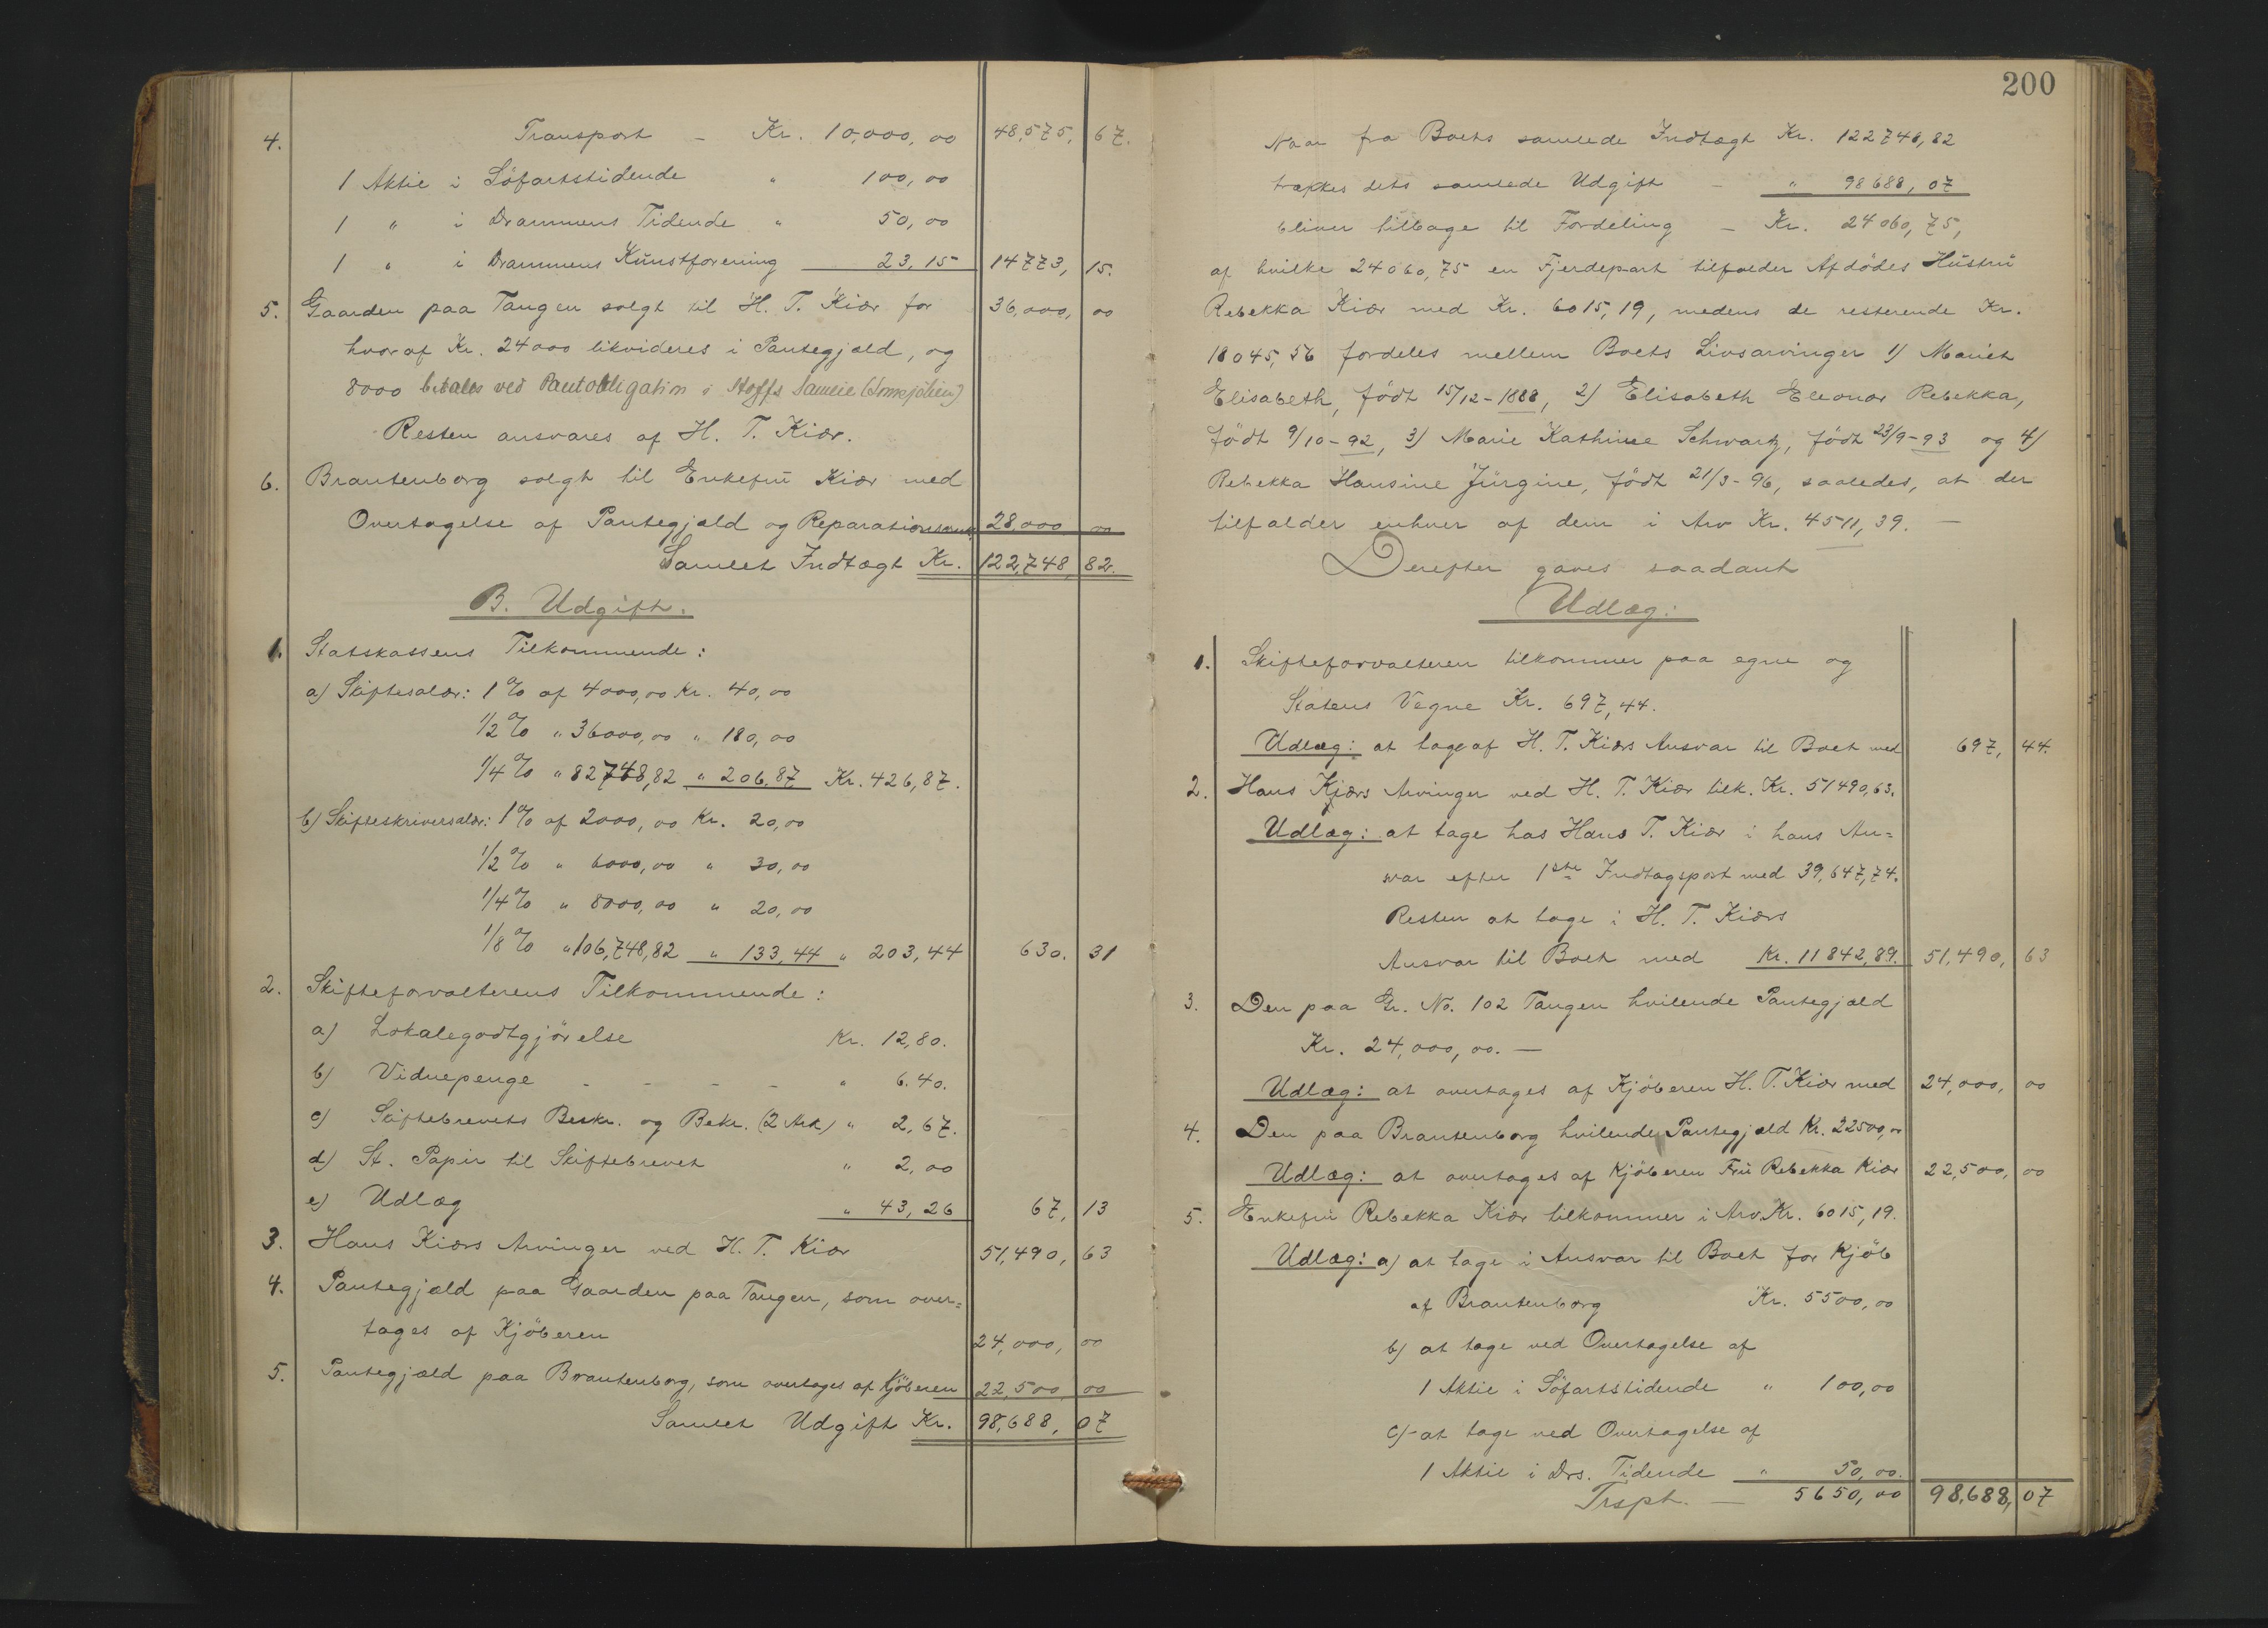 4. Transport – Kr. 10,000,00 48,575, 67.
1 Aktie i Söfartstidende " 100,00
1 " i Drammens Tidende " 50,00
1 " i Drammens Kunstforening 23,15 14773, 15.
5. Gaarden paa Tangen solgt til H. T. Kiær for 36,000, 00
hvoraf Kr. 24000 likvideres i Pantegjæld, og
8000 betales ved Pantobligation i Hoffs Sameie
Resten ansvares af H. T. Kiær.
6. Brantenborg solgt til Enkefru Kiær med
Overtagelse af Pantegjæld og 28,000 00
Samlet Indtægt Kr. 122,748, 82.
B. Udgift.
1. Statskassens Tilkommende:
a) Skiftesalær: 1% af 4000,00 Kr. 40,00
1/2 % " 36000,00 " 180,00
1/4 % " 82748,82 " 206,87 Kr. 426,87.
b) Skifteskriversalær: 1% af 2000,00 Kr. 20,00
1/2 % " 6000,00 " 30,00
1/4 % " 8000,00 " 20,00
1/8 % " 106,748,82 " 133,44 " 203,44 630. 31
2. Skifteforvalterens Tilkommende:
a) Lokalegodtgjörelse Kr. 12,80.
b) Vidnepenge - - - - " 6.40.
c) Skiftebrevets Beskr. og Bekr. (2 Ark) " 2,67.
d) St. Papir til Skiftebrevet " 2,00
e) Udlæg " 43,26 67, 13
3. Hans Kiærs Arvinger ved H. T. Kiær 51,490, 63
4. Pantegjæld paa Gaarden paa Tangen, som over=
tages af Kjöberen 24,000, 00
5. Pantegjæld paa Brantenborg, som overtages af Kjöberen 22,500 00
Samlet Udgift Kr. 98,688, 07
200
Naar fra Boets samlede Indtægt Kr. 122748,82
trækkes dets samlede Udgift – " 98688,07
bliver tilbage til Fordeling – Kr. 24060,75,
af hvilke 24060,75 en Fjerdepart tilfalder Afdödes Hustru
Rebekka Kiær med Kr. 6015,19, medens de resterende Kr.
18045,56 fordeles mellem Boets Livsarvinger 1) Marie
Elisabeth, födt 15/12-1888, 2) Elisabeth Eleonor Rebekka,
födt 9/10-92, 3) Marie Kathinca Schwartz, födt 23/9-93 og 4)
Rebekka Hansine Jürgine, födt 21/3-96, saaledes, at der
tilfalder enhver af dem i Arv Kr. 4511,39. —
Derefter gaves saadant
Udlæg:
1. Skifteforvalteren tilkommer paa egne og
Statens Vegne Kr. 697,44.
Udlæg: at tage af H. T. Kiærs Ansvar til Boet med 697, 44.
2. Hans Kjærs Arvinger ved H. T. Kiær tilk. Kr. 51490,63.
Udlæg: at tage hos Hans T. Kiær i hans An=
svar efter 1ste Indtægspost med 39,647,74.
Resten at tage i H. T. Kiærs
Ansvar til Boet med Kr. 11842,89. 51,490, 63
3. Den paa Gr. No. 102 Tangen hvilende Pantegjæld
Kr. 24,000,00. —
Udlæg: at overtages af Kjöberen H. T. Kiær med 24,000, 00
4. Den paa Brantenborg hvilende Pantegjæld Kr. 22500,00
Udlæg: at overtages af Kjöberen Fru Rebekka Kiær 22,500, 00
5. Enkefru Rebekka Kiær tilkommer i Arv Kr. 6015,19.
Udlæg: a) at tage i Ansvar til Boet for Kjöb
af Brantenborg Kr. 5500,00
b) at tage ved Overtagelse af
1 Aktie i Söfartstidende " 100,00
c) at tage ved Overtagelse af
1 Aktie i Drs. Tidende " 50,00.
Trspt. — 5650,00 98,688, 07